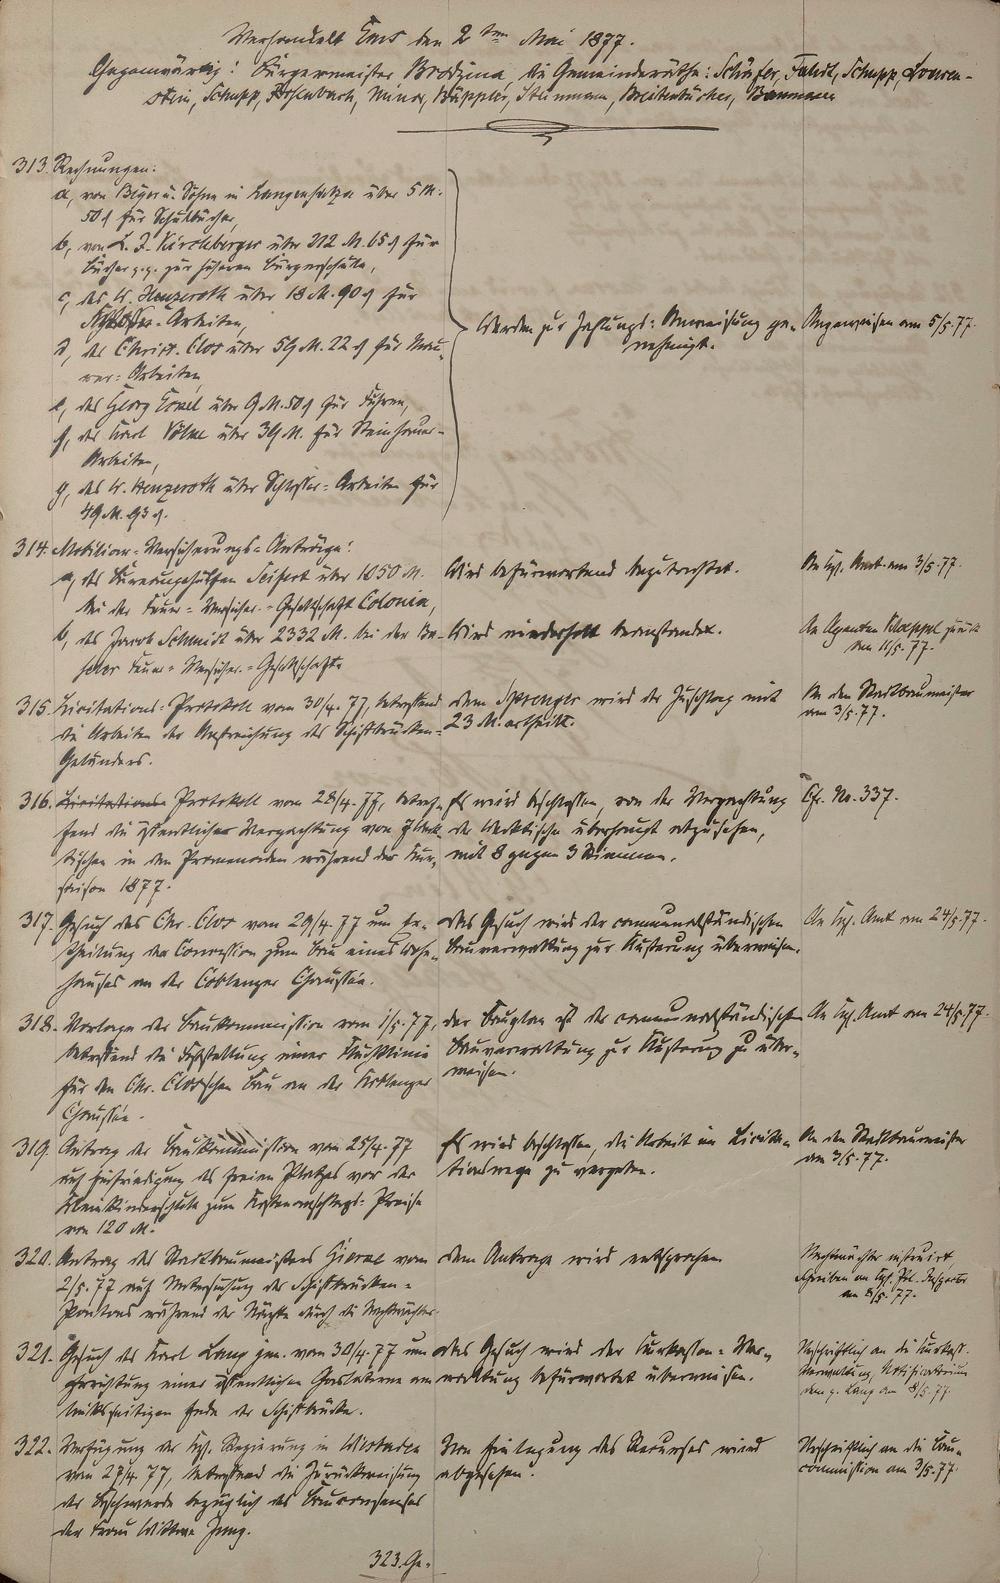 Verhandelt Ems den 2ten Mai 1877.
Gegenwärtig: Bürgermeister die Gemeinderäthe: Schäfer, Schupp, Löwen-
stein, Schupp, Minor, Küppler, Steinmann, Breitenbücher, Baumann
313. Rechnungen:
a, von Beyer u. Söhne in Langensalza über 5 M.
50 ₰ für Schulbücher,
b, von L. J. Kirchberger über 212 M. 65 ₰ für
Bücher p.p. zur höheren Bürgerschule,
c, des W. Henzeroth über 18 M. 90 ₰ für
Schlosser-Arbeiten,
d, des Christ. Clos über 59 M. 22 ₰ für Mau-
rer-Arbeiten
e, des Georg über 9 M. 50 ₰ für Fuhren,
f, des Karl über 39 M. für Steinhauer-
Arbeiten,
g, des W. Henzeroth über Schlosser-Arbeiten für
49 M. 93 ₰.
Werden zur Zahlungs-Anweisung ge-
nehmigt.
Angewiesen am 5/5.77.
314. Mobiliar-Versicherungs-Anträge:
a, des Bureaugehülfen Seifert über 1050 M.
bei der Feuer-Versicher.-Gesellschaft Colonia,
Wird befürwortend begutachtet.
An Kgl. Amt am 3/5.77.
b, des Jacob Schmidt über 2332 M. bei der Ba-
seler Feuer-Versicher.-Gesellschaft.
Wird wiederholt beanstandet.
An Agenten zurück
den 11/5.77.
315. Licitations-Protokoll vom 30/4.77, betreffend
die Arbeiten der Anstreichung des Schiffbrücken-
Geländers.
dem Sprenger wird der Zuschlag mit
23 M. ertheilt.
An den Stadtbaumeister
am 3/5.77.
316. Licitations Protokoll vom 28/4.77, betref-
fend die öffentlicher Verpachtung von
tischen in den Promenaden während der Kur-
saison 1877.
Es wird beschlossen, von der Verpachtung
der überhaupt abzusehen,
mit 8 gegen 3 Stimmen.
Cfr. No. 337.
317. Gesuch des Chr. Clos vom 29/4.77 um Er-
theilung der Concession zum Bau eines Wohn-
hauses an der Coblenzer Chaussée.
das Gesuch wird der communalständischen
Bauverwaltung zur Äußerung überwiesen.
An Kgl. Amt am 24/5.77.
318. Vorlage der Baukommission vom 1/5.77,
betreffend die Feststellung einer Fluchtlinie
für den Chr. Clos'schen Bau an der Koblenzer
Chaussée.
der Bauplan ist der communalständischen
Bauverwaltung zur Äußerung zu über-
weisen.
An Kgl. Amt am 24/5.77.
319. Antrag der Baukommission vom 25/4.77
auf Einfriedigung des freien Platzes vor der
Kleinkinderschule zum Kostenanschlags-Preise
von 120 M.
Es wird beschlossen, die Arbeit im Licita-
tionswege zu vergeben.
An den Stadtbaumeister
am 3/5.77.
320. Antrag des Stadtbaumeisters vom
2/5.77 auf Untersuchung der Schiffbrücken-
Pontons während der Nächte durch die Nachtwächter.
dem Antrage wird entsprochen
Nachtwächter instruirt
Schreiben an Kgl. Pol. Inspector
am 8/5.77.
321. Gesuch des Karl Lang jun. vom 30/4.77 um
Errichtung einer öffentlichen Gaslaterne am
linksseitigen Ende der Schiffbrücke.
das Gesuch wird der Kurkassen-Ver-
waltung befürwortet überwiesen.
Urschriftlich an die Kurkass.
Verwaltung,
dem p. Lang am 8/5.77.
322. Verfügung der Kgl. Regierung in Wiesbaden
vom 27/4.77, betreffend die Zurückweisung
der Beschwerde bezüglich des Bauconsenses
der Frau Wittwe Jung.
Von Einlegung des Recurses wird
abgesehen.
Urschriftlich an die Bau-
commission am 3/5.77.
323. Ge-